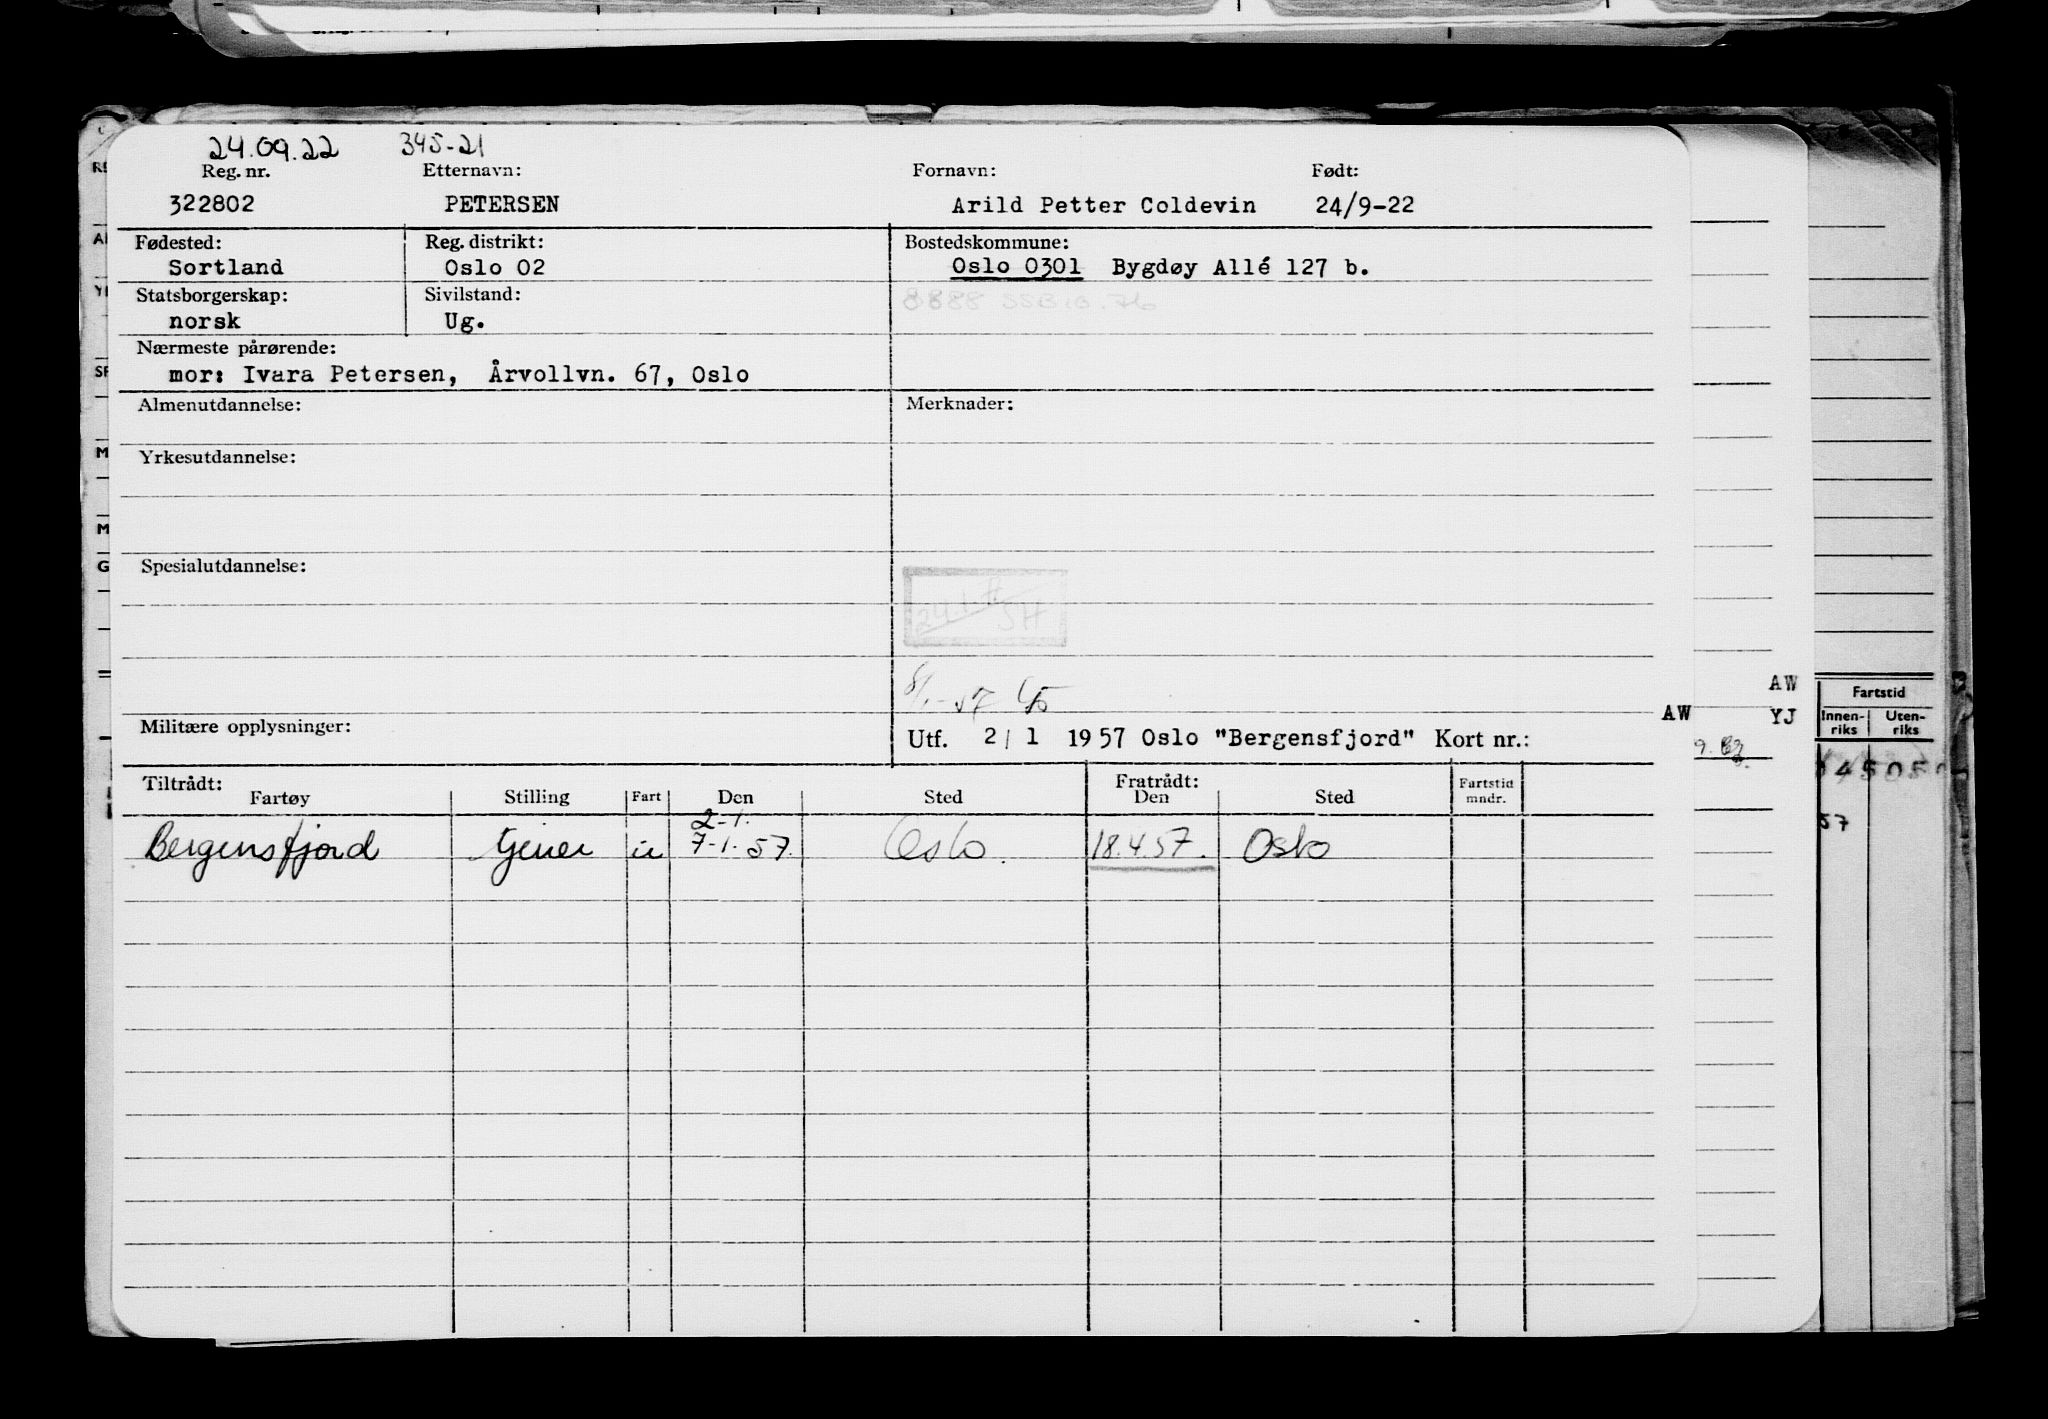 24.09.22 345-21
Reg. nr. Etternavn: Fornavn: Født:
322802 PETERSEN Arild Petter Coldevin 24/9-22
Fødested: Reg. distrikt: Bostedskommune:
Sortland Oslo 02 Oslo 0301 Bygdøy Allé 127 b.
Statsborgerskap: Sivilstand:
norsk Ug.
Nærmeste pårørende:
mor: Ivara Petersen, Årvollvn. 67, Oslo
Almenutdannelse: Merknader:
Yrkesutdannelse:
Spesialutdannelse:
AW
AW
YJ
Fartstid
Innen-riks Uten-riks
Militære opplysninger: Utf. 2/1 1957 Oslo "Bergensfjord" Kort nr.:
Tiltrådt: Fratrådt:
Fartøy Stilling Fart Den Sted Den Sted Fartstid mndr.
2-1.
Bergensfjord 7-1.57. Oslo. 18.4.57. Oslo
57